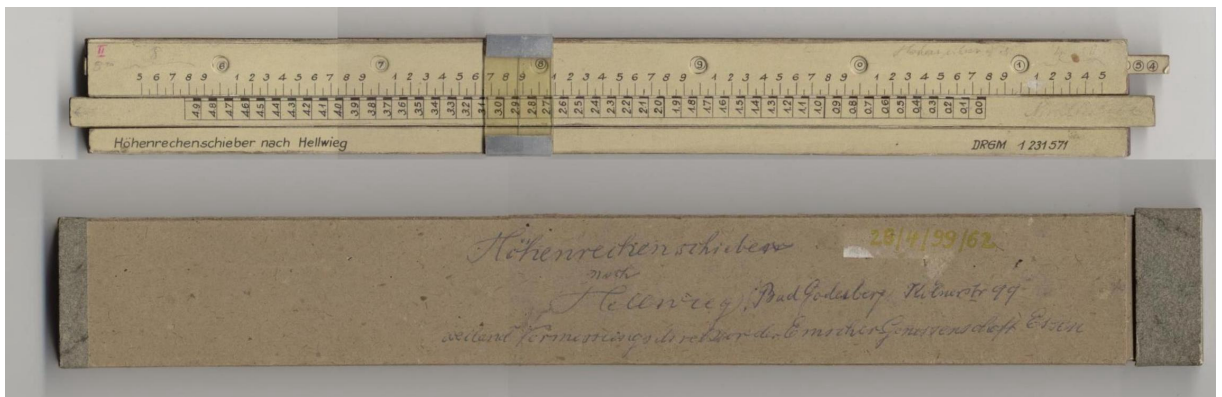 6 7 8 9 0 1 5 4
5 6 7 8 9 1 2 3 4 5 6 7 8 9 1 2 3 4 5 6 7 8 9 1 2 3 4 5 6 7 8 9 1 2 3 4 5 6 7 8 9 1 2 3 4 5 6 7 8 9 1 2 3 4 5
4.9 4.8 4.7 4.6 4.5 4.4 4.3 4.2 4.1 4.0 3.9 3.8 3.7 3.6 3.5 3.4 3.3 3.2 3.1 3.0 2.9 2.8 2.7 2.6 2.5 2.4 2.3 2.2 2.1 2.0 1.9 1.8 1.7 1.6 1.5 1.4 1.3 1.2 1.1 1.0 0.9 0.8 0.7 0.6 0.5 0.4 0.3 0.2 0.1 0.0
Höhenrechenschieber nach Hellwieg DRGM 1231571
Höhenrechenschieber 28/4/99/62
nach
Hellwieg, Bad Godesberg 99
weiland Vermessungsdirektor der Emscher Genossenschaft Essen